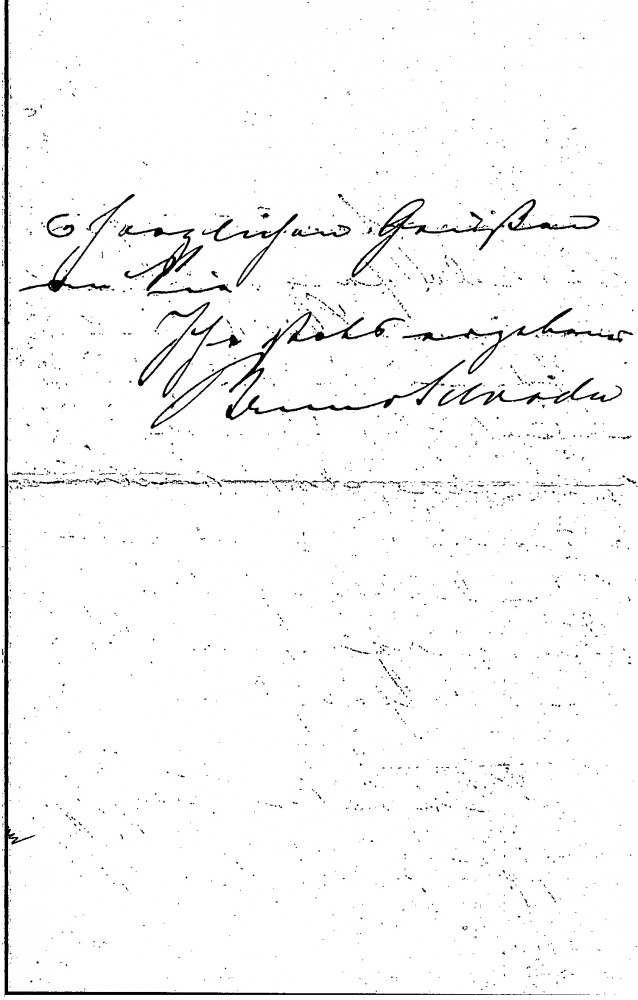 Herzlichen Grüßen
an Sie
Ihr stets ergebener
Bruno Schröder